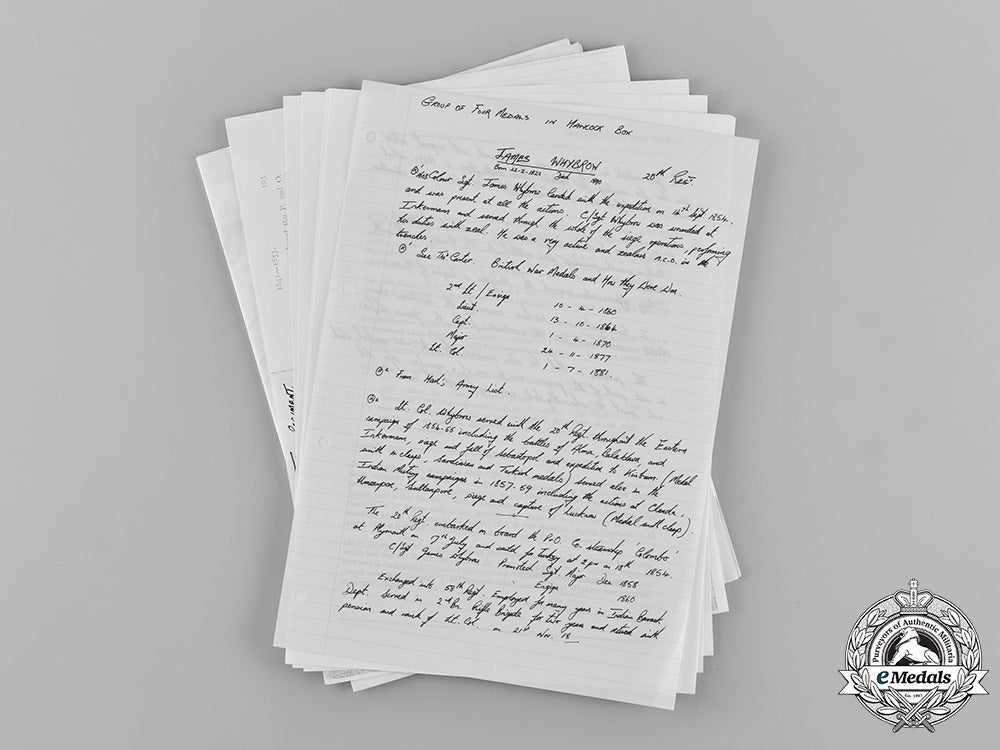 GROUP OF FOUR MEDALS IN HANCOCK BOX
JAMES WHYBROW 20th Regt.
Born 22-2-1822 Died 1890
Colour Sgt. James Whybrow landed with the expedition on 14th Sept 1854.
and was present at all the actions. C/Sgt Whybrow was wounded at
Inkermann and served through the whole of the siege operations, performing
his duties with zeal. He was a very active and zealous N.C.O. in the
trenches.
See Carter. British War Medals and How they Were Won.
2nd Lt / Ensign 10 - 4 - 1860
Lieut. 13 - 10 - 1864
Capt. 1 - 4 - 1870
Major 24 - 11 - 1877
Lt. Col. 1 - 7 - 1881.
From Hart's Army List.
Lt. Col. Whybrow served with the 20th Regt. throughout the Eastern
campaign of 1854-55 including the battles of Alma, Balaklava, and
Inkerman, siege and fall of Sebastopol and expedition to Kinburn. (Medal
with 4 clasps, Sardinian and Turkish medals) served also in the
Indian Mutiny campaigns in 1857-59 including the actions at Chanda,
Umeerpore, Sultanpore, siege and capture of Lucknow (Medal with clasp).
The 20th Regt. embarked on board the P&O. Co. steamship 'Colombo'
at Plymouth on 7th July and sailed for Turkey at 2pm on 18th 1854.
C/Sgt James Whybrow Promoted Sgt. Major Dec 1858
Ensign 1860
Exchanged into 58th Regt. Employed for many years in Indian Barrack
Dept. Served in 2nd Bn. Rifle Brigade for two years and retired with
pension and rank of Lt. Col. on 21st Nov. 18
103
and the P. and O.
1841-1855
REGIMENT.
Purveyors of Authentic Militaria
eMedals